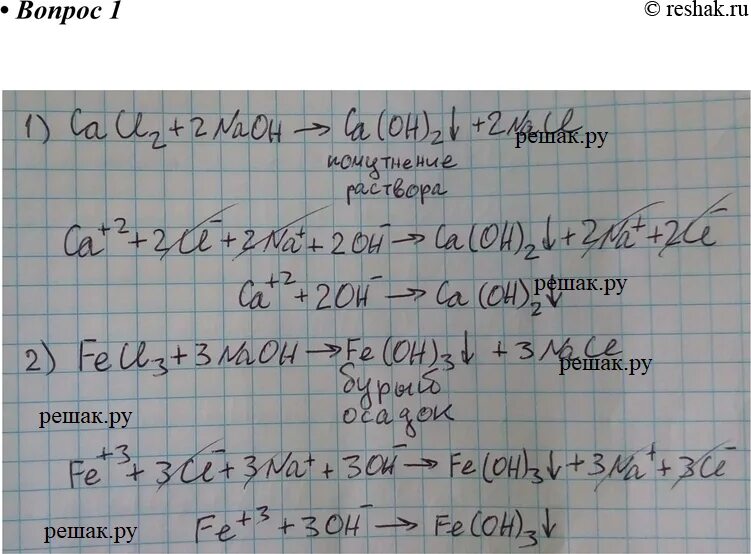 • Вопрос 1
© reshak.ru
1) CaCl₂ + 2NaOH → Ca(OH)₂↓ + 2NaCl
решак.ру
помутнение
раствора
Ca⁺² + 2Cl⁻ + 2Na⁺ + 2OH⁻ → Ca(OH)₂↓ + 2Na⁺ + 2Cl⁻
Ca⁺² + 2OH⁻ → Ca(OH)₂↓
решак.ру
2) FeCl₃ + 3NaOH → Fe(OH)₃↓ + 3NaCl
решак.ру
бурый
осадок
решак.ру
Fe⁺³ + 3Cl⁻ + 3Na⁺ + 3OH⁻ → Fe(OH)₃↓ + 3Na⁺ + 3Cl⁻
решак.ру
Fe⁺³ + 3OH⁻ → Fe(OH)₃↓